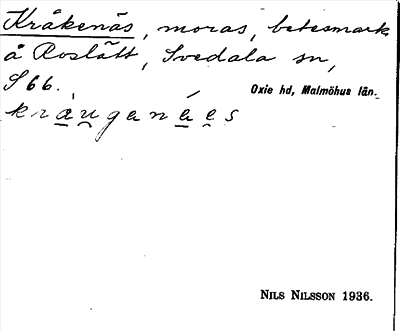 Kråkenäs, moras, betesmark
å Roslätt, Svedala sn,
S 66. Oxie hd, Malmöhus län.
kra̱u̯genä̱e̯s
NILS NILSSON 1936.